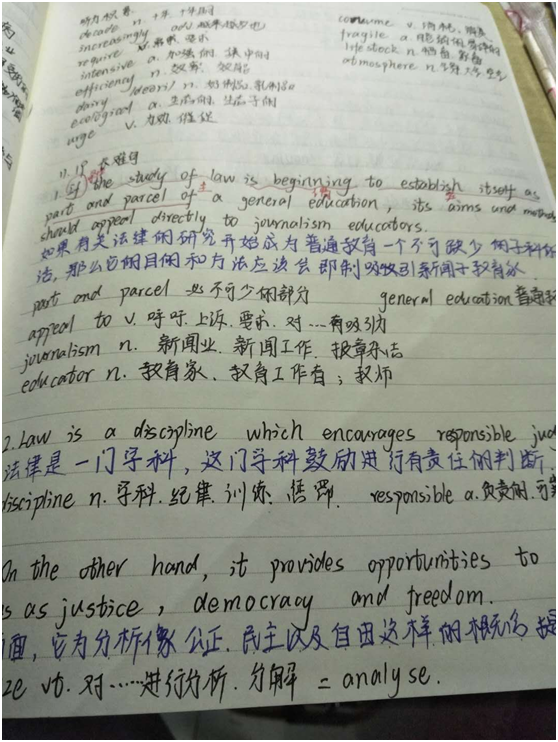 听力积累
decade n. 十年 十年间
increasingly adv. 越来越多地
require v. 需求 要求
intensive a. 加强的 集中的
efficiency n. 效率 效能
dairy /deəri/ n. 奶制品 乳制品
ecological a. 生态的 生态学的
urge v. 力劝 催促
consume v. 消耗
fragile a.
livestock n. 牲畜 家畜
atmosphere n.
长难句
1. If the study of law is beginning to establish itself as
part and parcel of a general education, its aims and methods
should appeal directly to journalism educators.
如果有关法律的研究开始成为普通教育一个不可缺少的学科
法, 那么它的目的和方法应该会即刻吸引新闻学教育家.
part and parcel 不可少的部分 general education 普通
appeal to v. 呼吁. 上诉. 要求. 对…有吸引力
journalism n. 新闻业. 新闻工作. 报章杂志
educator n. 教育家. 教育工作者; 教师
2. Law is a discipline which encourages responsible
法律是一门学科, 这门学科鼓励进行有责任的判断.
discipline n. 学科. 纪律. 训练. 惩罚. responsible a. 负责的.
On the other hand, it provides opportunities to
s as justice, democracy and freedom.
面, 它为分析像公正. 民主以及自由这样的概念
ze vt. 对……进行分析. 分解 = analyse.